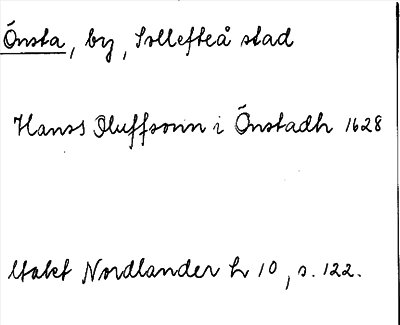 Önsta, by, Sollefteå stad
Hanss Oluffsonn i Önstadh 1628
Utakt Nordlander h 10, s. 122.